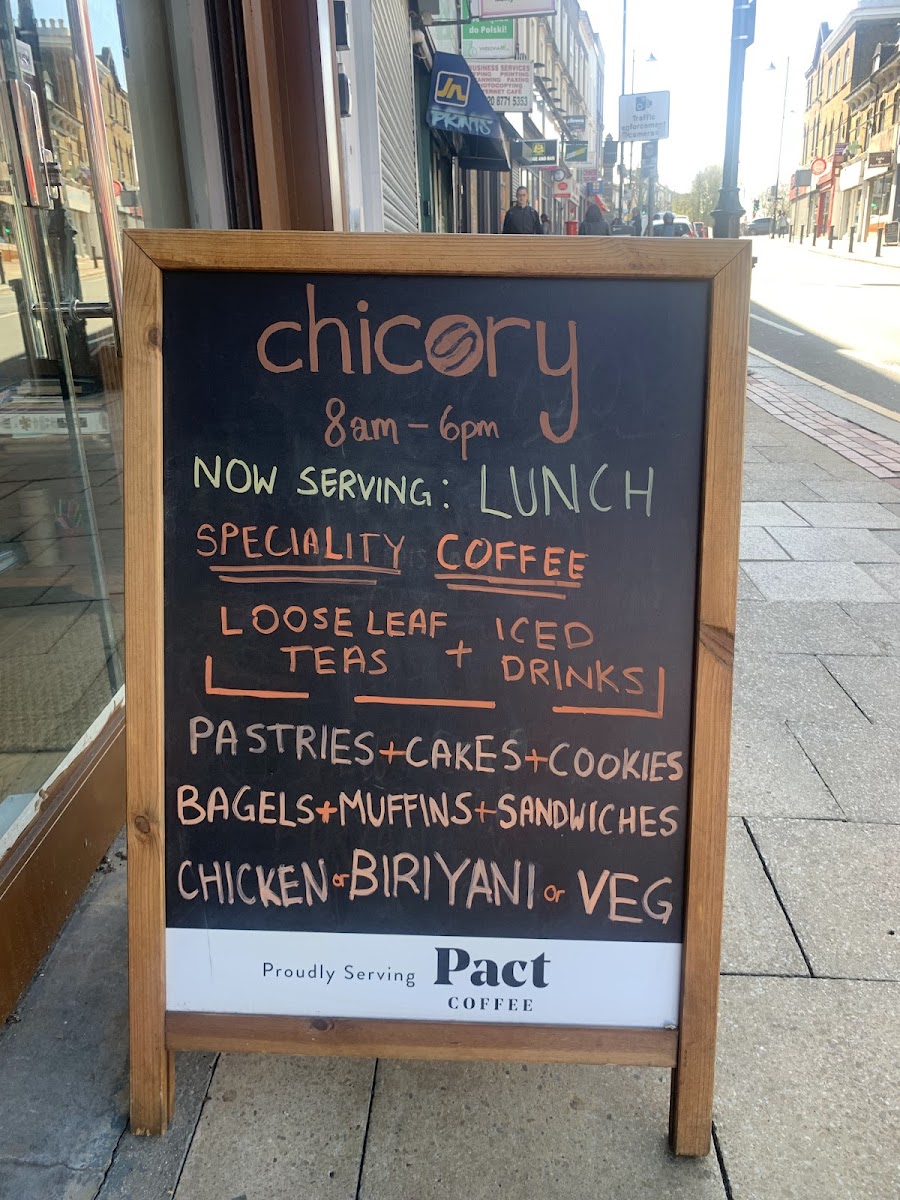 do Polski!
BUSINESS SERVICES
PRINTING
PHOTOCOPYING
INTERNET CAFE
020 8771 5353
PRINTS
Traffic
enforcement
cameras
chicory
8am – 6pm
NOW SERVING: LUNCH
SPECIALITY COFFEE
LOOSE LEAF TEAS + ICED DRINKS
PASTRIES + CAKES + COOKIES
BAGELS + MUFFINS + SANDWICHES
CHICKEN or BIRIYANI or VEG
Proudly Serving Pact
COFFEE